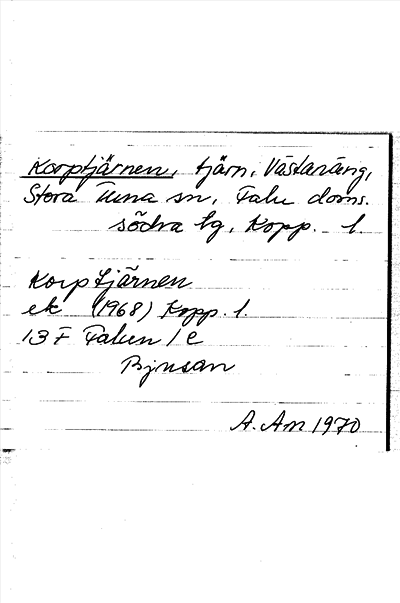 Korptjärnen, tjärn, Västanäng,
Stora Tuna sn, Falu doms.
södra tg, Kopp. l.
Korptjärnen
ek (1968) Kopp. l.
13 F Falun / e
Bjusan
A. Am 1970